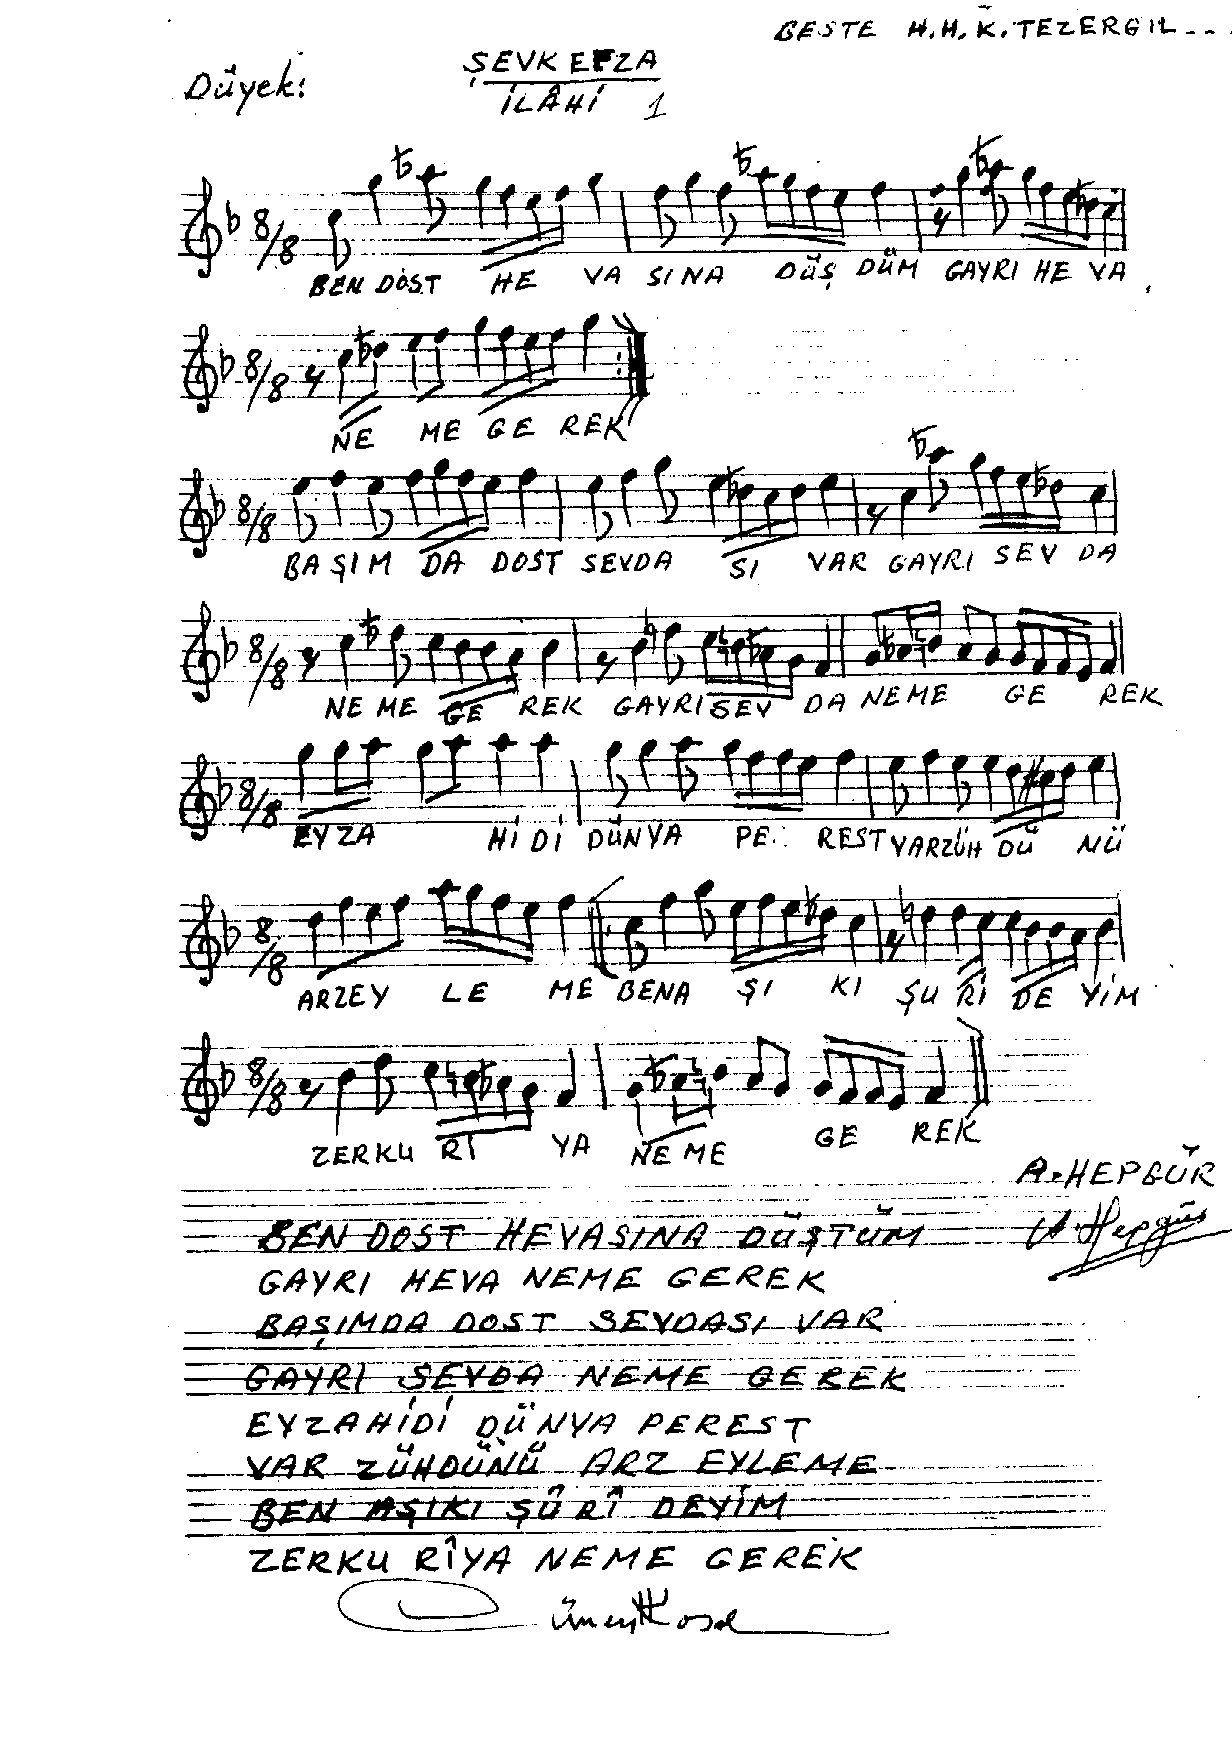 BESTE H.H.K. TEZERGİL...
ŞEVKEFZA
Düyek:
İLÂHİ 1
8/8
BEN DOST HE VA SINA DÜŞ DÜM GAYRI HE VA
8/8
NE ME GE REK
8/8
BA ŞIM DA DOST SEVDA SI VAR GAYRI SEV DA
8/8
NE ME GE REK GAYRI SEV DA NE ME GE REK
8/8
EYZA Hİ Dİ DÜN YA PE REST VARZÜH DÜ NÜ
8/8
ARZEY LE ME BENA ŞI KI ŞU Rİ DE YİM
8/8
ZERKU Rİ YA NE ME GE REK
A. HEPGÜR
A. Hepgür
BEN DOST HEVASINA DÜŞTÜM
GAYRI HEVA NEME GEREK
BAŞIMDA DOST SEVDASI VAR
GAYRI SEVDA NEME GEREK
EYZAHİDİ DÜNYA PEREST
VAR ZÜHDÜNÜ ARZ EYLEME
BEN AŞIKI ŞÛRÎ DEYİM
ZERKU RÎYA NEME GEREK